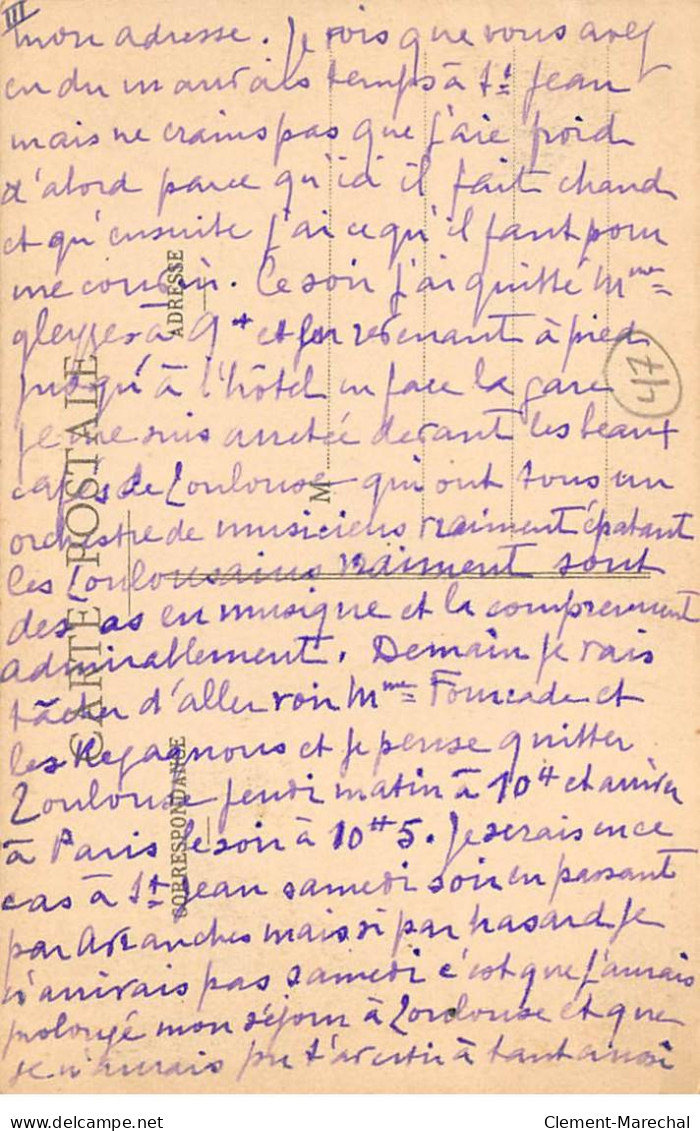 III
mon adresse. Je vois que vous avez
eu du mauvais temps à St Jean
mais ne crains pas que j'aie froid
d'abord parce qu'ici il fait chaud
et qu'ensuite j'ai ce qu'il faut pour
me couvrir. Ce soir j'ai quitté Mme
gleyzes à 9H et en revenant à pied
jusqu'à l'hôtel en face la gare
je me suis arretée devant les beaux
cafés de Toulouse qui ont tous un
orchestre de musiciens vraiment épatant
les Toulousains vraiment sont
des as en musique et la comprennent
admirablement. Demain je vais
tâcher d'aller voir Mme Fourcade et
les Regagnous et je pense quitter
Toulouse jeudi matin à 10H et arriver
à Paris le soir à 10H5. Je serais en ce
cas à St Jean samedi soir en passant
par Avranches mais si par hasard je
n'arrivais pas samedi c'est que j'aurais
prolongé mon séjour à Toulouse et que
je n'aurais pu t'avertir à tant aussi
CARTE POSTALE
CORRESPONDANCE
ADRESSE
M
47
delcampe.net
Clement-Marechal